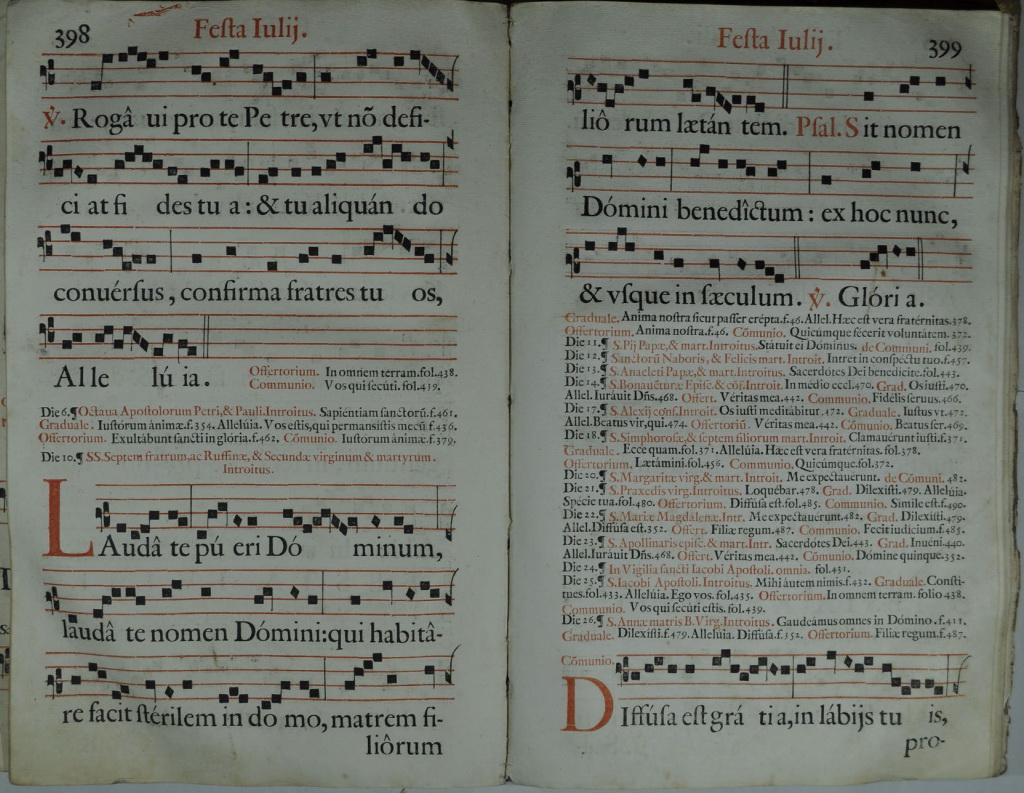 398
Festa Iulij.
℣. Rogâ ui pro te Pe tre, vt nõ defi-
ci at fi des tu a: & tu aliquán do
conuérsus, confirma fratres tu os,
Al le lú ia.
Offertorium. In omnem terram. fol. 438.
Communio. Vos qui secúti. fol. 439.
Die 6. ¶ Octaua Apostolorum Petri, & Pauli. Introitus. Sapiéntiam sanctórũ. f. 461.
Graduale. Iustórum ánimæ. f. 354. Allelúia. Vos estis, qui permansístis mecũ. f. 436.
Offertorium. Exultábunt sancti in glória. f. 462. Cõmunio. Iustórum ánimæ. f. 379.
Die 10. ¶ SS. Septem fratrum, ac Ruffinæ, & Secundæ virginum & martyrum.
Introitus.
LAudâ te pú eri Dó minum,
laudâ te nomen Dómini: qui habitâ-
re facit stérilem in do mo, matrem fi-
liôrum
Festa Iulij.
399
liô rum lætán tem. Psal. Sit nomen
Dómini benedîctum: ex hoc nunc,
& vsque in sæculum. ℣. Glóri a.
Graduale. Anima nostra sicut passer erépta. f. 46. Allel. Hæc est vera fratérnitas. 378.
Offertorium. Anima nostra. f. 46. Cõmunio. Quicúmque fécerit voluntátem. 372.
Die 11. ¶ S. Pij Papæ, & mart. Introitus. Státuit ei Dóminus. de Communi. fol. 439.
Die 12. ¶ Sanctorũ Naboris, & Felicis mart. Introit. Intret in conspéctu tuo. f. 457.
Die 13. ¶ S. Anacleti Papæ, & mart. Introitus. Sacerdótes Dei benedícite. 443.
Die 14. ¶ S. Bonauẽturæ Episc. & cõf. Introit. In médio eccl. 470. Grad. Os iusti. 470.
Allel. Iuráuit Dñs. 468. Offert. Véritas mea. 442. Communio. Fidélis seruus. 466.
Die 17. ¶ S. Alexij cõf. Introit. Os iusti meditábitur. 472. Graduale. Iustus vt. 472.
Allel. Beatus vir, qui. 474. Offertoriũ. Véritas mea. 442. Cõmunio. Beatus ser. 469.
Die 18. ¶ S. Simphorosæ, & septem filiorum mart. Introit. Clamauérunt iusti. f. 371.
Graduale. Ecce quam. fol. 371. Allelúia. Hæc est vera fratérnitas. f. 378.
Offertorium. Lætámini. fol. 456. Communio. Quicúmque. fol. 372.
Die 20. ¶ S. Margaritæ virg. & mart. Introit. Me expectauerunt. de Cõmuni. 482.
Die 21. ¶ S. Praxedis virg. Introitus. Loquébar. 478. Grad. Dilexísti. 479. Allelúia.
Spécie tua. fol. 480. Offertorium. Diffúsa est. fol. 485. Communio. Símile est. f. 490.
Die 22. ¶ S. Mariæ Magdalenæ. Intr. Me expectauerunt. 482. Grad. Dilexísti. 479.
Allel. Diffúsa est. 352. Offert. Fíliæ regum. 487. Communio. Feci iudícium. f. 485.
Die 23. ¶ S. Apollinaris episc. & mart. Intr. Sacerdótes Dei. 443. Grad. Inuéni. 440.
Allel. Iuráuit Dñs. 468. Offert. Véritas mea. 442. Cõmunio. Dómine quinque. 352.
Die 24. ¶ In Vigilia sancti Iacobi Apostoli. omnia. fol. 431.
Die 25. ¶ S. Iacobi Apostoli. Introitus. Mihi áutem nimis. f. 432. Graduale. Consti-
tues. fol. 433. Allelúia. Ego vos. fol. 435. Offertorium. In omnem terram. folio 438.
Communio. Vos qui secúti estis. fol. 439.
Die 26. ¶ S. Annæ matris B. Virg. Introitus. Gaudeámus omnes in Dómino. f. 411.
Graduale. Dilexísti. f. 479. Allelúia. Diffúsa. f. 352. Offertorium. Fíliæ regum. f. 487.
Cõmunio.
DIffúsa est grá ti a, in lábijs tu is,
pro-